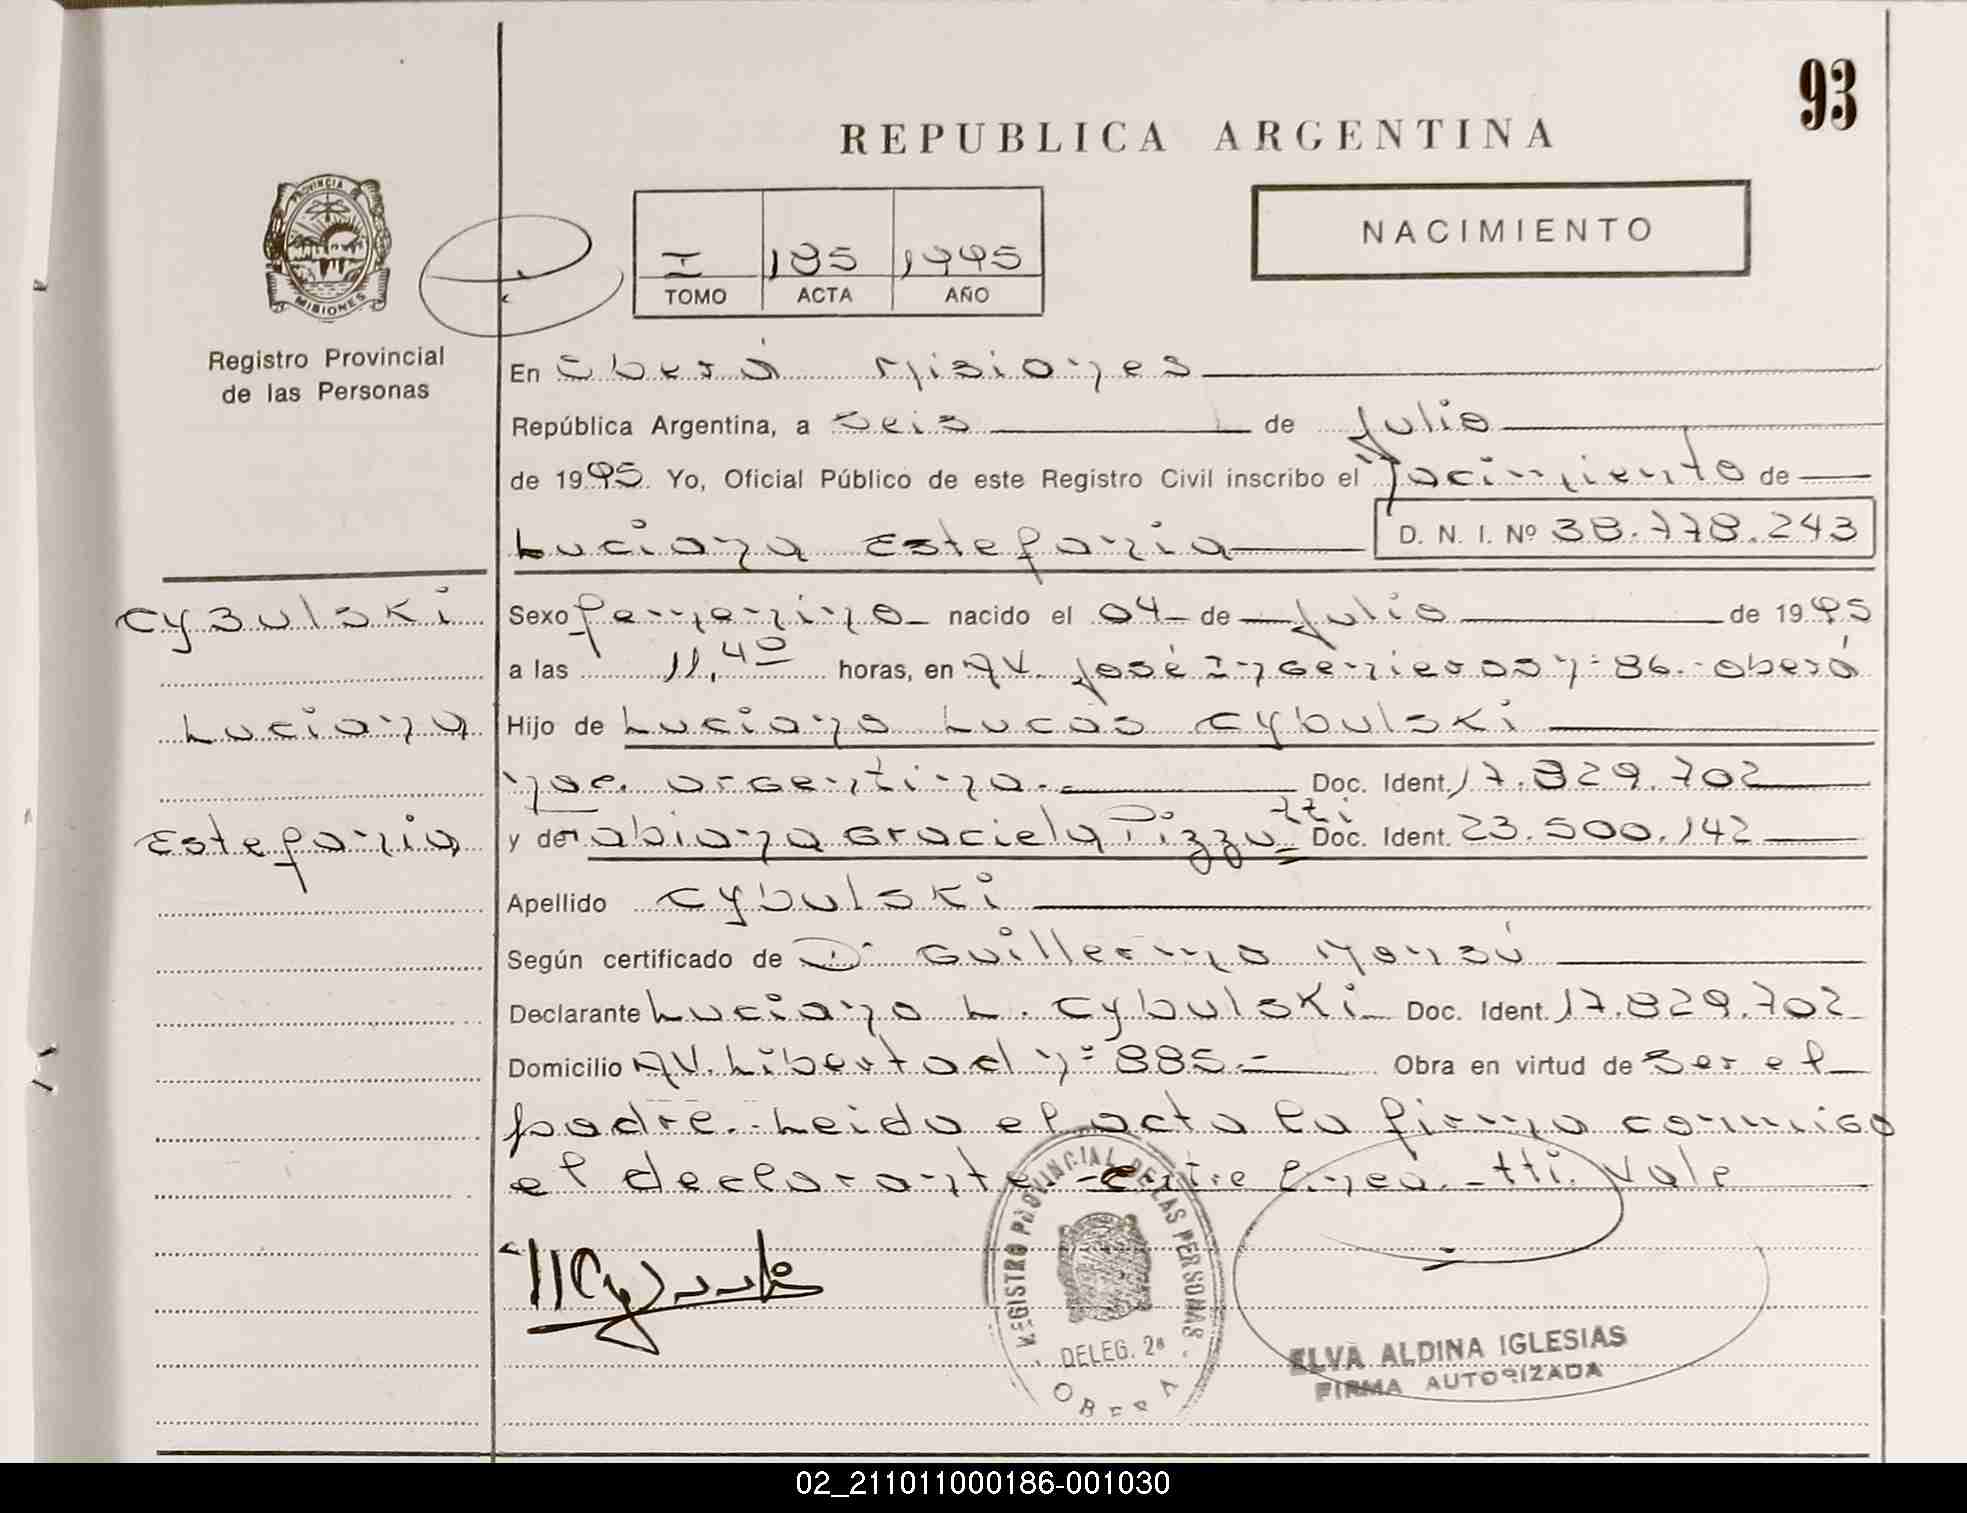 93
REPUBLICA ARGENTINA
NACIMIENTO
PROVINCIA DE
MISIONES
Registro Provincial
de las Personas
I 185 1995
TOMO ACTA AÑO
En Oberá Misiones
República Argentina, a seis de Julio
de 1995. Yo, Oficial Público de este Registro Civil inscribo el nacimiento de
Luciana Estefania D. N. I. Nº 38.778.243
Cybulski
Luciana
Estefania
Sexo femenino nacido el 04 de Julio de 1995
a las 11,40 horas, en AV. José Ingenieros nº 86.- Oberá
Hijo de Luciano Lucas Cybulski
nac. argentina.- Doc. Ident. 17.829.702
y de Fabiana Graciela Pizzutti Doc. Ident. 23.500.142
Apellido Cybulski
Según certificado de Dr Guillermo Mansú
Declarante Luciano L. Cybulski Doc. Ident. 17.829.702
Domicilio AV. Libertad nº 885.- Obra en virtud de Ser el
padre.- Leida el acta la firma conmigo
el declarante.- entre linea.- tti. Vale
REGISTRO PROVINCIAL DE LAS PERSONAS
DELEG. 2ª
OBERA
ELVA ALDINA IGLESIAS
FIRMA AUTORIZADA
02_211011000186-001030